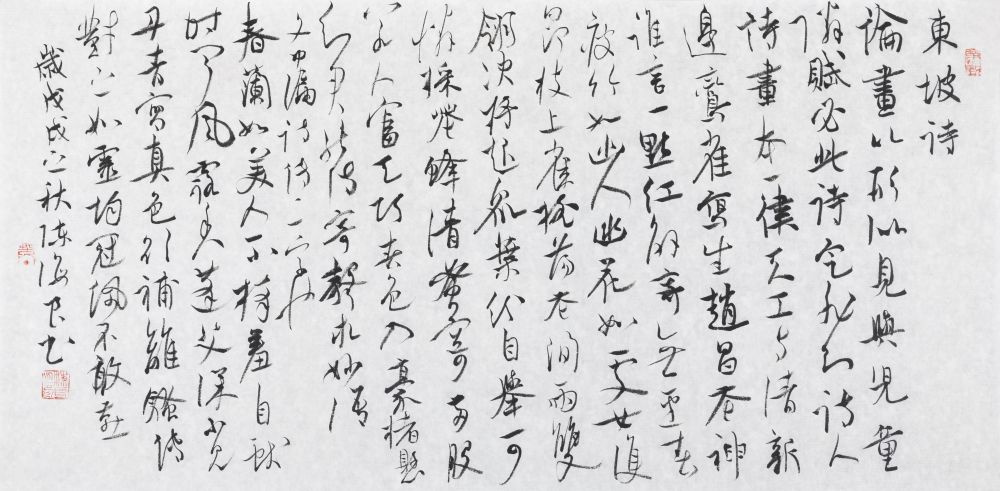 東坡詩
論畫以形似見與兒童
隣賦必此詩定非知詩人
詩畫本一律天工与清新
邊鸞雀寫生趙昌花神
誰言一點紅解寄無邊春
瘦竹如幽人幽花如处女低
昂枝上雀搖蕩花間雨雙
翎決將起眾葉紛自舉可
憐採花蜂清蜜寄兩股
若人富天巧春色入毫楮懸
知君能詩寄聲求妙語
文中漏詩傳二字也
春蘭如美人不採羞自献
时聞風露香蓬艾深不見
丹青寫真色欲補離騷傳
對之如靈均冠佩不敢燕
歲戊戌之秋陳海良书